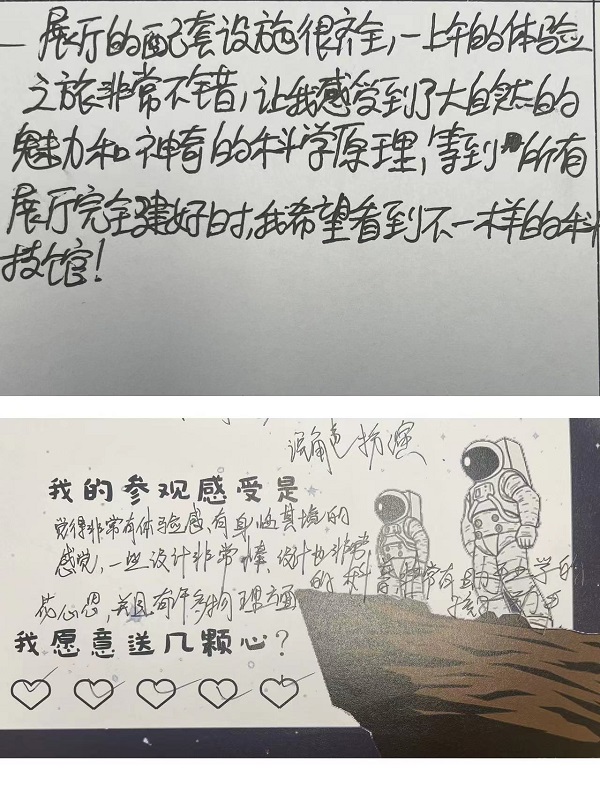 展厅的配套设施很齐全,一上午的体验
之旅非常不错,让我感受到了大自然的
魅力和神奇的科学原理,等到所有
展厅完全建好时,我希望看到不一样的科
技馆!
角色扮演
我的参观感受是
觉得非常有体验感,有身临其境的
感觉,一些设计非常棒,设计也非常
花心思,并且有许多物理方面的科
我愿意送几颗心?